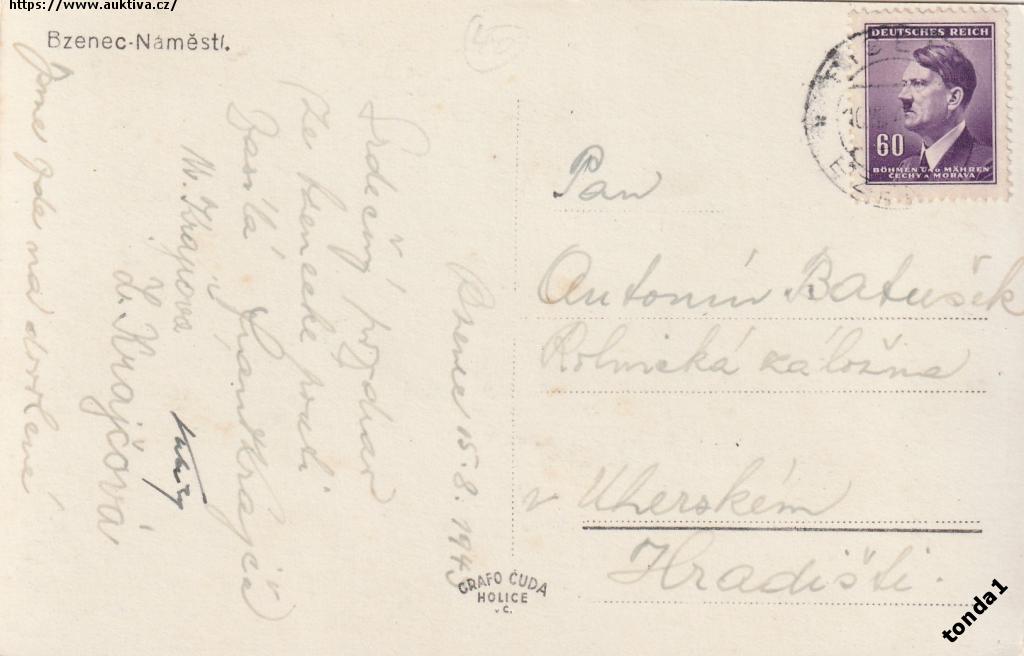 https://www.auktiva.cz/
Bzenec-Náměstí.
DEUTSCHES REICH
60
BÖHMEN UND MÄHREN
ČECHY A MORAVA
Bzenec 15.8. 194
Srdečný pozdrav
ze bzenecké pouti
L. Krajčová
jsme zde na dovolené
Pan
Antonín Batušek
Rolnická záložna
v Uherském
Hradišti.
GRAFO ČUDA
HOLICE
v Č.
tonda1